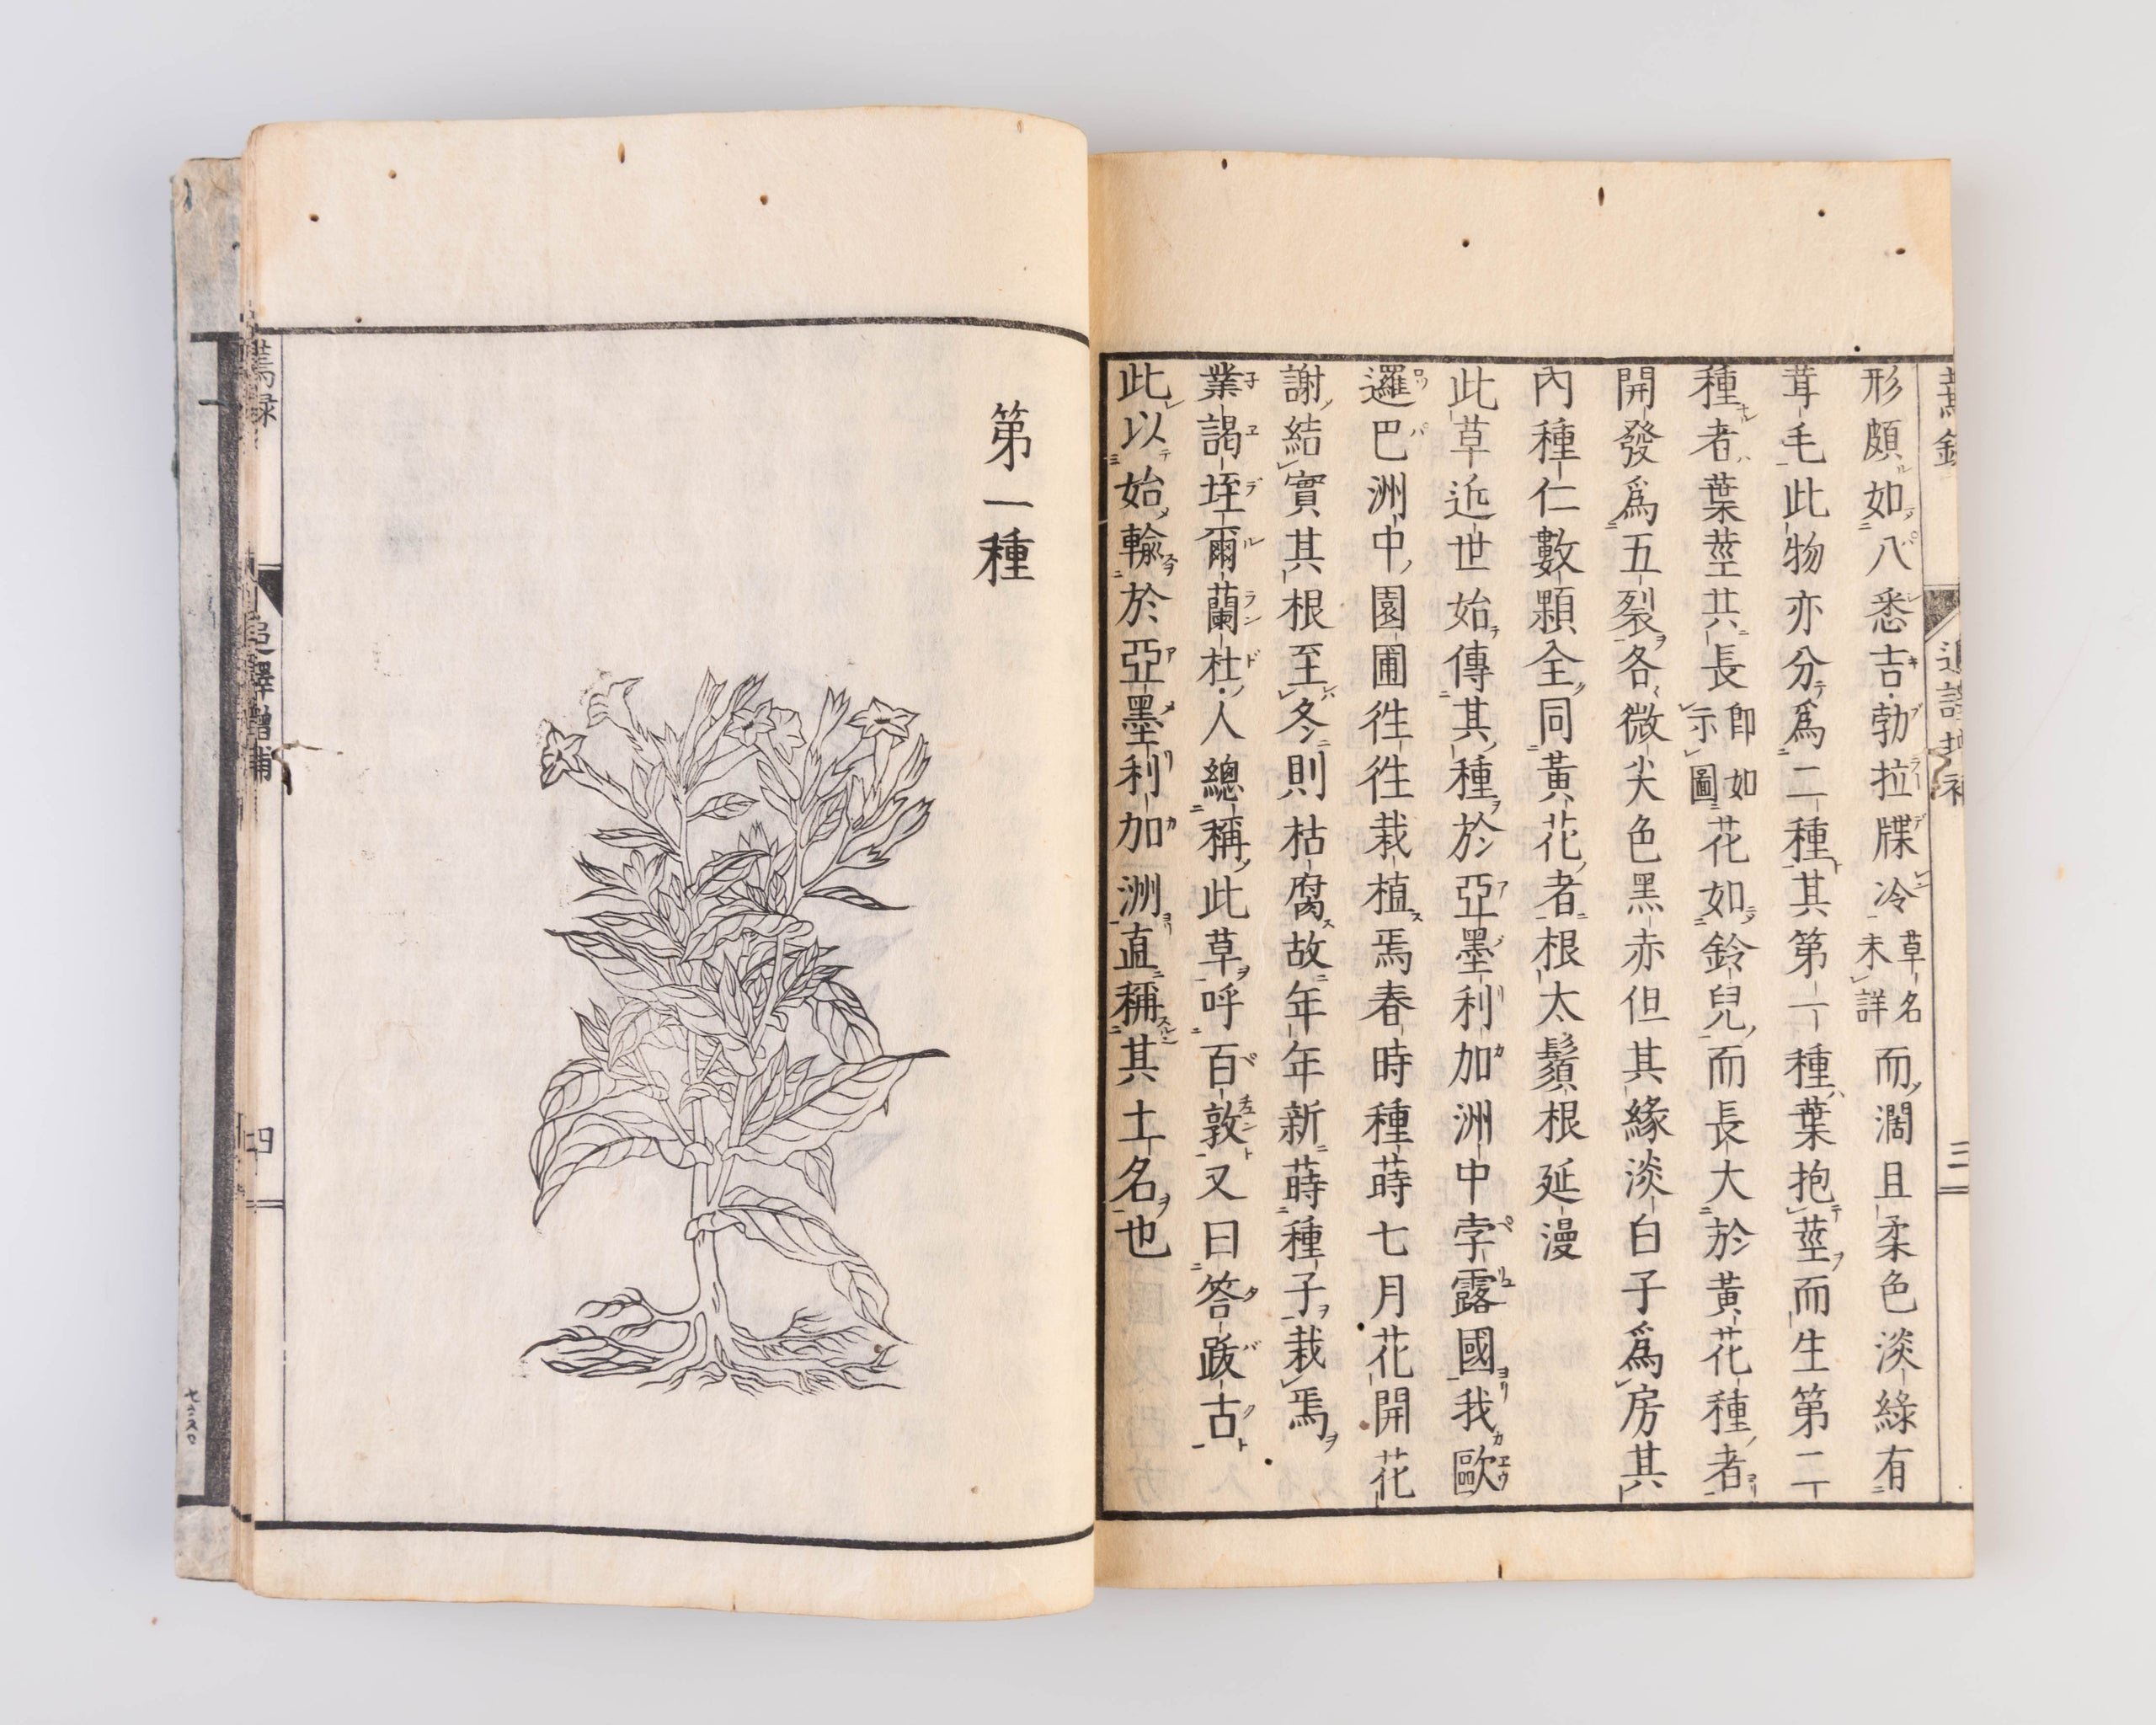 形頗如八悉吉勃拉牒冷草名未詳而濶且柔色淡綠有
茸毛此物亦分爲二種其第一種葉抱莖而生第二
種者葉莖共長卽如示圖花如鈴兒而長大於黃花種者
開發爲五裂各微尖色黑赤但其緣淡白子爲房其
內種仁數顆全同黃花者根太鬚根延漫
此草近世始傳其種於亞墨利加洲中孛露國我歐
邏巴洲中園圃往往栽植焉春時種蒔七月花開花
謝結實其根至冬則枯腐故年年新蒔種子栽焉
業謁垤爾蘭杜人總稱此草呼百敦又曰答跋古
此以始輸於亞墨利加洲直稱其土名也
第一種
蔫録
追譯增補
四